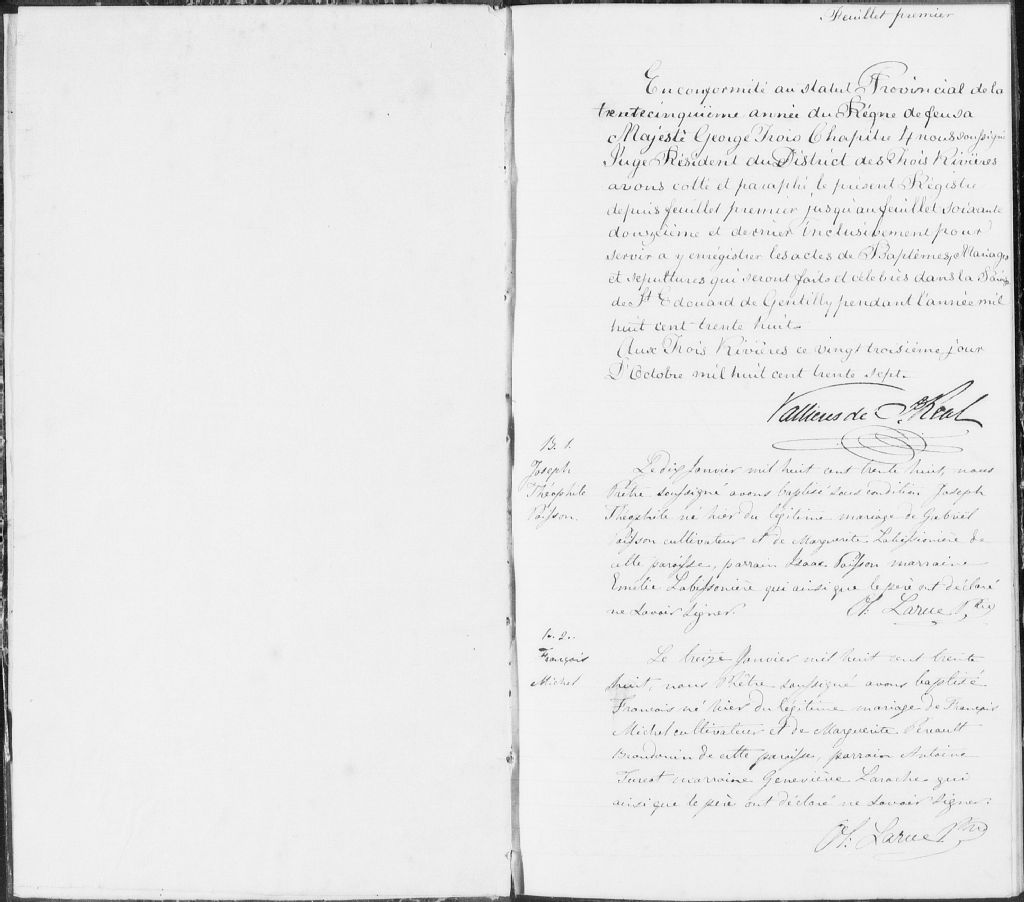 Feuillet premier
En conformité au statut Provincial de la
trente cinquième année du Règne de feu sa
Majesté George Trois Chapitre 4 nous soussigné
Juge Résident du District des Trois Rivières
avons cotté et paraphé le présent Régistre
depuis feuillet premier jusqu'au feuillet soixante
douzième et dernier inclusivement pour
servir a y enrégistrer les actes de Baptêmes, Mariages
et sepultures qui seront faits et célébrés dans la
de St Edouard de Gentilly pendant l'année mil
huit cent trente huit.
Aux Trois Rivières ce vingt troisième jour
D'Octobre mil huit cent trente sept.
Vallieres de St. Réal
B. 1.
Joseph
Théophile
Poisson.
Le dix Janvier mil huit cent trente huit, nous
Prêtre soussigné avons baptisé sous condition Joseph
Théophile né hier du légitime mariage de Gabriel
Poisson cultivateur et de Marguerite Labissionière de
cette paroisse, parrain Isaac Poisson marraine
Emélie Labissonière qui ainsi que le père ont déclaré
ne savoir signer. Larue Ptre
B. 2.
François
Michel
Le treize Janvier mil huit cent trente
huit, nous Prêtre soussigné avons baptisé
François né hier du légitime mariage de François
Michel cultivateur et de Marguerite
de cette paroisse, parrain Antoine
Turcot marraine Geneviève Laroche qui
ainsi que le père ont déclaré ne savoir signer.
Larue Ptre